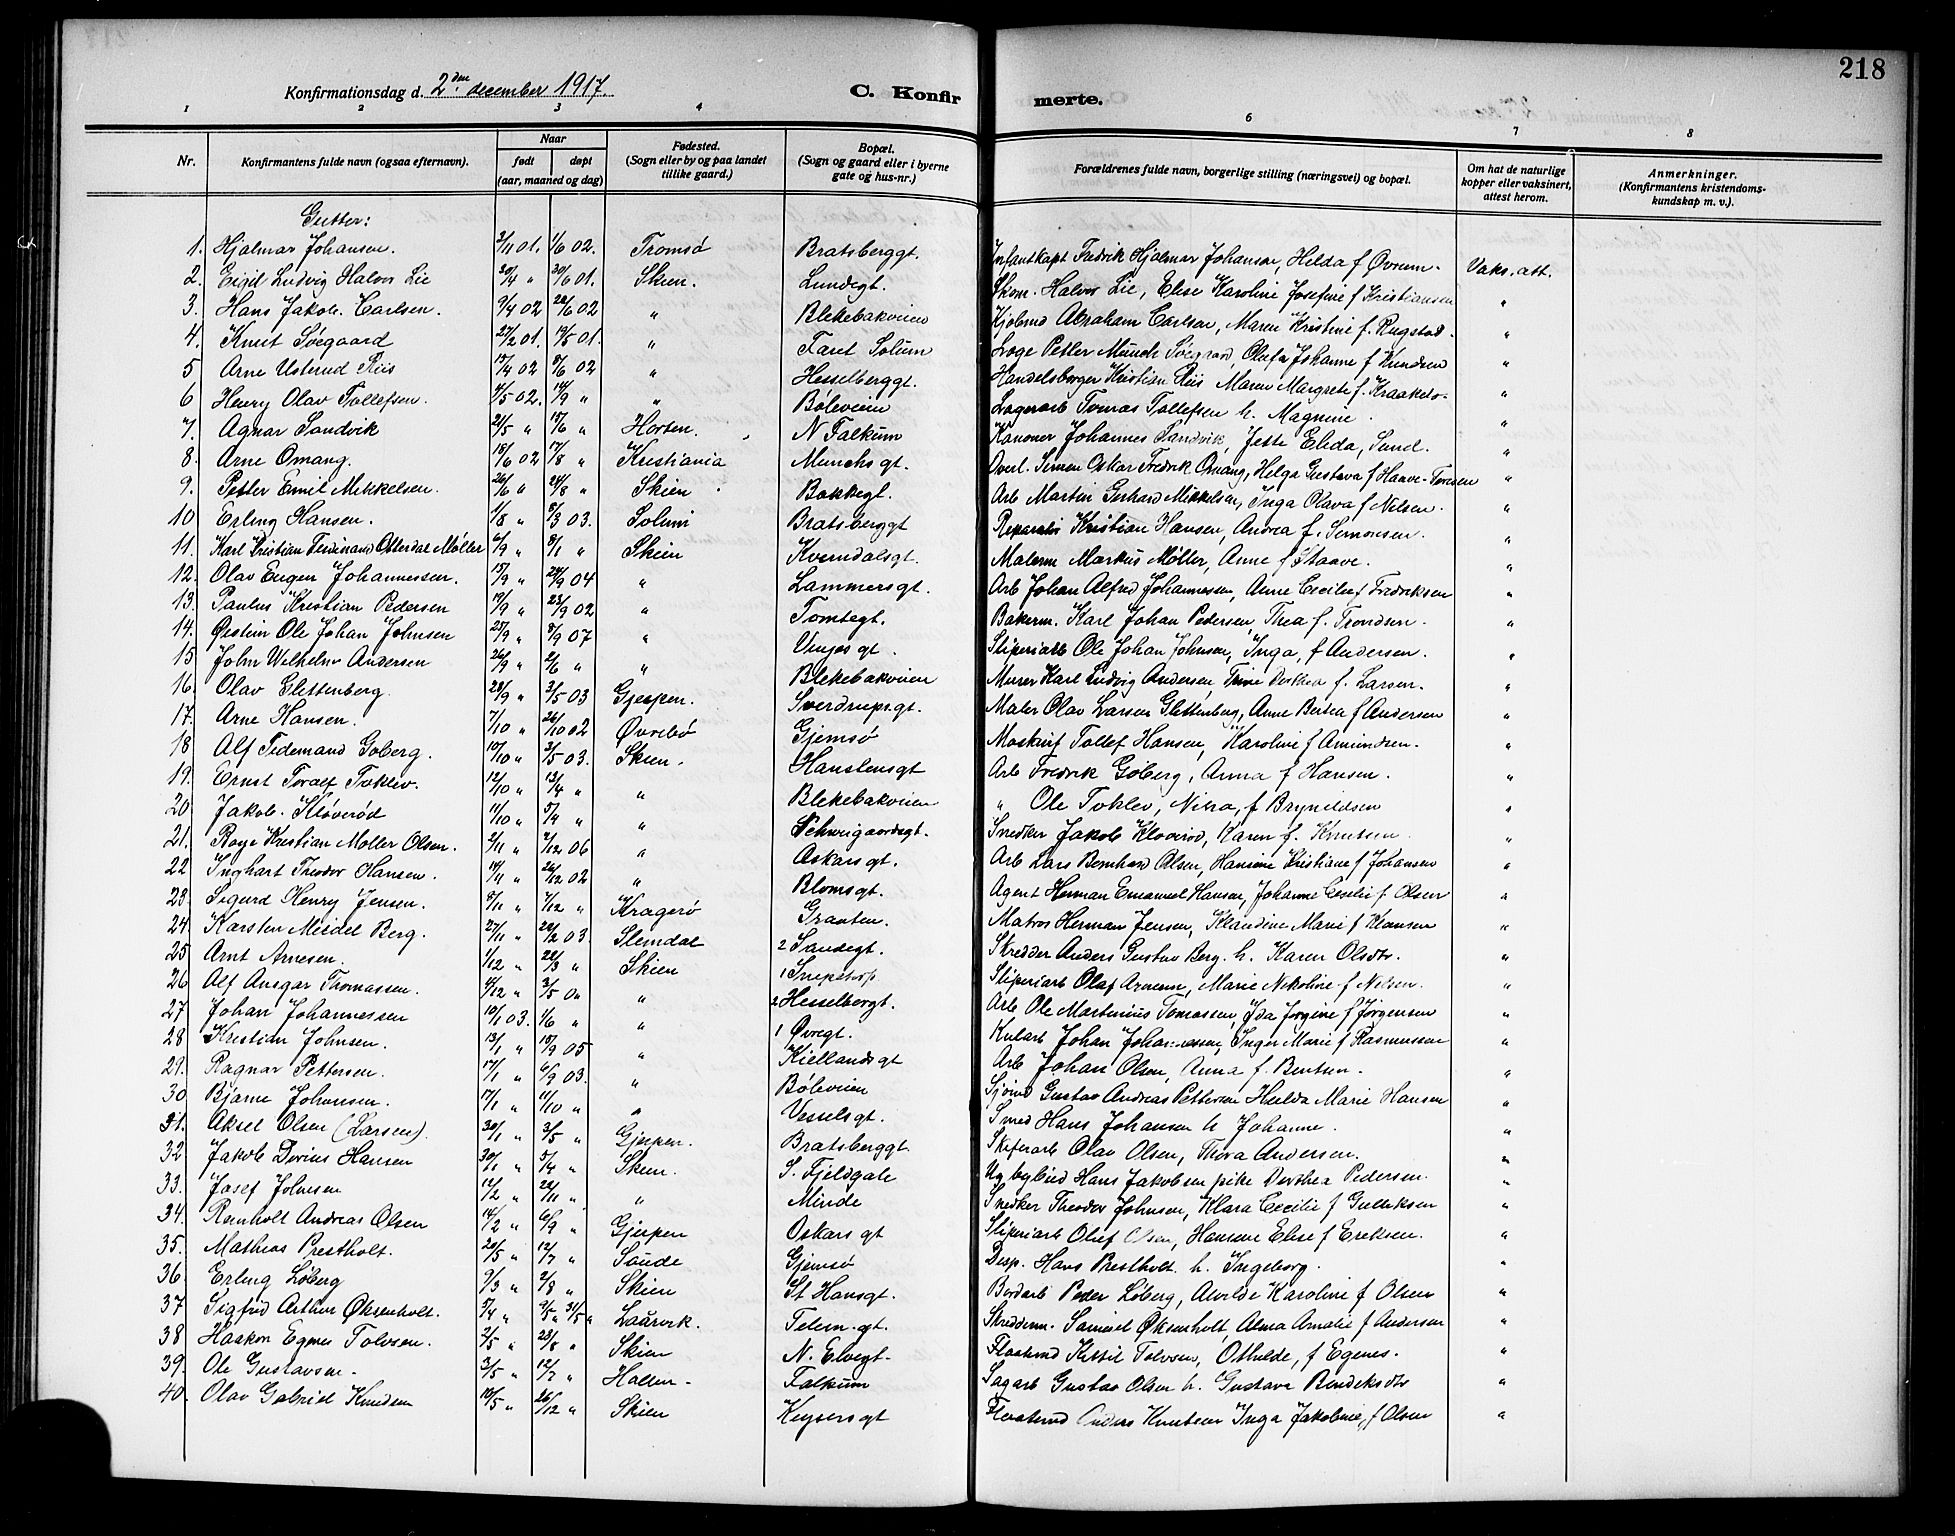 218
Konfirmationsdag d. 2den december 1917.
C. Konfirmerte.
1 2 3 4 6 7 8
Nr. Konfirmantens fulde navn (ogsaa efternavn). Naar født døpt (aar, maaned og dag) Fødested. (Sogn eller by og paa landet tillike gaard.) Bopæl. (Sogn og gaard eller i byerne gate og hus-nr.) Forældrenes fulde navn, borgerlige stilling (næringsvei) og bopæl. Om hat de naturlige kopper eller vaksinert, attest herom. Anmerkninger. (Konfirmantens kristendomskundskap m. v.).
Gutter:
1. Hjalmar Johansen. 3/11 01. 1/6 02. Tromsø Bratsberggt. Infantkapt Fredrik Hjalmar Johansen, Hilda f Øvrum. Vaks. att.
2. Eigil Ludvig Halvor Lie 20/4 " 30/6 01. Skien. Lundegt. Skom. Halvor Lie, Elise Karoline Josefine f Kristiansen "
3. Hans Jakob Carlsen. 9/4 02 22/6 02 " Blekebakveien Abraham Carlsen, Maren Kristine f. Rugstad. "
4. Knut Søegaard 27/2 01. 19/5 01. " Faret Solum Petter Münch Søegaard, Olufa Johanne f Knudsen "
5 Arne Usterud Riis 15/4 02 8/6 02 " Hesselberggt. Handelsborger Kristian Riis Maren Margrete f. "
6 Henry Olav Tollefsen. 4/5 02. 14/9 " " Bøleveien Lagerarb Tomas Tollefsen h. Magnine. "
7. Agnar Sandvik 21/5 " 15/6 " Horten. N Falkum Kanoner Johannes Sandvik, Jette Elida, Sund. "
8. Arne Omang. 18/6 02 17/8 " Kristiania Munchs gt. Overl. Simon Oskar Fredrik Omang, Helga Gustava f "
9. Petter Emil Mikkelsen. 26/6 " 24/8 " Skien Bakkegt. Arb Martin Gerhard Mikkelsen, Inga Olava f Nilsen. "
10 Erling Hansen. 1/8 " 8/3 03. Solum Bratsberggt Kristian Hansen, Andrea f. Simonsen. "
11. Karl Kristian Ferdinand Otterdal Møller 6/9 " 8/1 " Skien Kverndalsgt. Malerm Markus Møller, Anne f Staave. "
12. Olav Eugen Johannessen. 15/9 " 04 " Lammersgt. Arb Johan Alfred Johannessen, Anne Cecilie f Fredriksen "
13. Paulus Kristian Pedersen 19/9 " 23/9 02 " Tomtegt. Bakerm. Karl Johan Pedersen, Thea f. Trondsen. "
14. Øistein Ole Johan Johnsen 25/9 " 8/9 07 " Vinjes gt. Sliperiarb Ole Johan Johnsen, Inga, f Andersen. "
15 John Wilhelm Andersen 26/9 " 2/6 " " Blekebakveien Murer Karl Ludvig Andersen, Trine Dorthea f. Larsen. "
16. Olav Glettenberg. 28/9 " 3/5 03 Gjerpen. Sverdrups.gt. Maler Olav Larsen Glettenberg, Anne Bertea f Andersen "
17. Arne Hansen. 7/10 " 26/10 02 Øvrebø Gjemsø Maskinf Tollef Hansen, Karoline f Amundsen. "
18 Alf Tidemand Goberg. 10/10 " 3/5 03. Skien. Hansteensgt Arb Fredrik Goberg, Anna f Hansen. "
19. Ernst Toralf Toklev. 12/10 " 13/4 " " Blekebakveien " Ole Toklev, f Brynildsen "
20 Jakob Kløverød 11/10 " 5/4 " " Schweigaardsgt. Snedker Jakob Kløverød, Karen f. Knutsen. "
21. Roye Kristian Møller Olsen. 2/11 " 2/12 06 " Oskars gt. Arb Lars Bernhard Olsen, Hansine Kristiane f Johansen "
22 Inghart Theodor Hansen. 14/11 " 26/12 02 " Blomsgt. Agent Herman Emanuel Hansen, Johanne Cecilie f Olsen "
23. Sigurd Henry Jensen. 8/11 " 7/12 " Kragerø Graaten. Matros Herman Jensen, Klaudine Marie f Klausen "
24. Karsten Meidel Berg. 27/11 " 22/2 03. Slemdal 2 Landegt. Skredder Anders Gustav Berg. h. Karen Olsdtr. "
25 Arnt Arnesen. 1/12 " 22/3 " Skien 1 Snipetorp Sliperiarb Olaf Arnesen, Marie Nikoline f Nilsen. "
26 Alf Ansgar Thomassen. 4/12 " 3/5 " " 2 Hesselbergt. Arb Ole Martinius Tomassen, Ida Jørgine f Jørgensen "
27 Johan Johannessen 10/1 03. 1/6 " " 1 Øvregt. Kularb Johan Johannessen, Inger Marie f Rasmussen "
28 Kristian Johnsen. 13/1 " 10/9 05 " Kiellandsgt Arb Johan Olsen, Anna f. Bentsen. "
29. Ragnar Pettersen. 17/1 " 6/9 03. " Bøleveien Sjømd Gustav Andreas Pettersen Hulda Marie Hansen "
30 Bjarne Johansen. 17/1 " 11/10 " " Vesselsgt. Smed Hans Johansen h Johanne. "
31. Aksel Olsen (Larsen). 30/1 " 3/5 " Gjerpen. Bratsberggt Skiferarb Olav Olsen, Thora Andersen. "
32 Jakob Dorius Hansen 30/1 " 5/4 " Skien. S. Fjeldgate Ug bybud Hans Jakobsen pike Dorthea Pedersen. "
33. Josef Johnsen 12/2 " 22/11 " " Minde Snedker Theodor Johnsen, Klara Cecilie f Gulliksen "
34. Reinholt Andreas Olsen 14/2 " 6/9 " Gjerpen Oskars gt Sliperiarb Oluf Olsen, Hansine Elise f Eriksen. "
35. Mathias Prestholt. 20/5 " 12/7 " Saude Gjemsø Disp. Hans Prestholt. h. Ingeborg. "
36. Erling Løberg 9/3 " 2/8 " Skien St Hansgt. Bordarb Peder Løberg, Alvilde Karoline f Olsen "
37 Sigfrid Arthur Øksenholt. 5/4 " 31/5 " Laurvik. Telem.gt. Skredderm. Samuel Øksenholt, Alma Amalie f Andersen "
38 Haakon Egnes Tolvsen. 2/5 " 23/8 " Skien N. Elvegt. Kittil Tolvsen, Othilde, f Egenes. "
39. Ole Gustavsen. 3/5 " 12/7 " Falkum Sagarb Gustav Olsen h. Gustava "
40. Olav Gabriel Knudsen 10/5 " 26/12 " Skien Keysersgt Anders Knutsen Inga Jakobine, f Olsen "